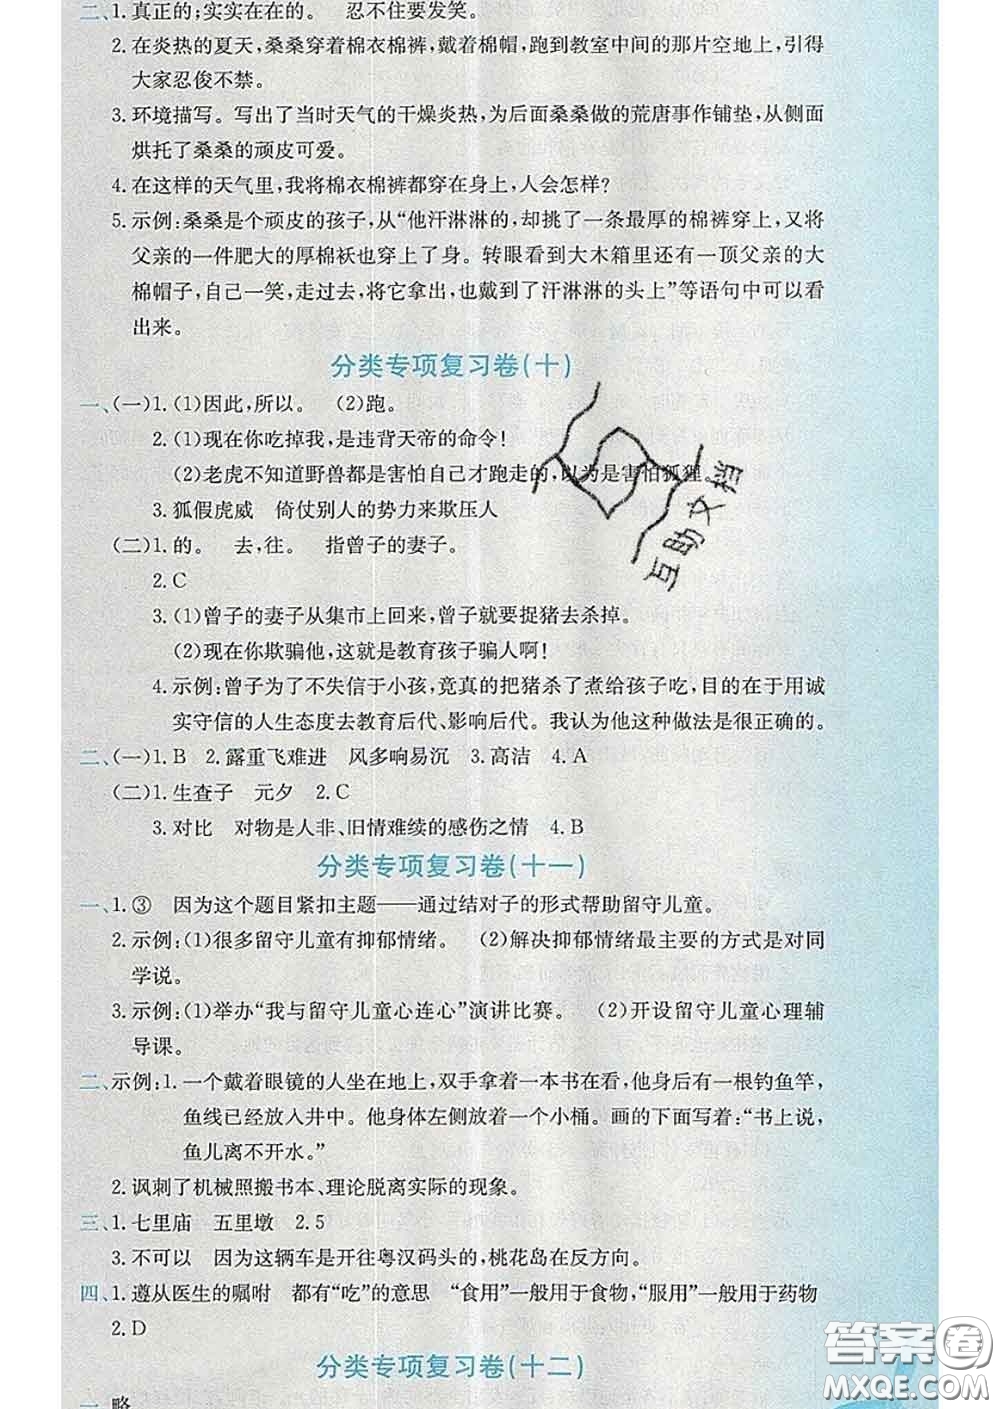 二、1.真正的;实实在在的。 忍不住要发笑。
2.在炎热的夏天,桑桑穿着棉衣棉裤,戴着棉帽,跑到教室中间的那片空地上,引得
大家忍俊不禁。
3.环境描写。写出了当时天气的干燥炎热,为后面桑桑做的荒唐事作铺垫,从侧面
烘托了桑桑的顽皮可爱。
4.在这样的天气里,我将棉衣棉裤都穿在身上,人会怎样?
5.示例:桑桑是个顽皮的孩子,从“他汗淋淋的,却挑了一条最厚的棉裤穿上,又将
父亲的一件肥大的厚棉袄也穿上了身。转眼看到大木箱里还有一顶父亲的大
棉帽子,自己一笑,走过去,将它拿出,也戴到了汗淋淋的头上”等语句中可以看
出来。
分类专项复习卷(十)
一、(一)1.(1)因此,所以。 (2)跑。
2.(1)现在你吃掉我,是违背天帝的命令!
(2)老虎不知道野兽都是害怕自己才跑走的,以为是害怕狐狸。
3.狐假虎威 倚仗别人的势力来欺压人
(二)1.的。 去,往。 指曾子的妻子。
2.C
3.(1)曾子的妻子从集市上回来,曾子就要捉猪去杀掉。
(2)现在你欺骗他,这就是教育孩子骗人啊!
4.示例:曾子为了不失信于小孩,竟真的把猪杀了煮给孩子吃,目的在于用诚
实守信的人生态度去教育后代、影响后代。我认为他这种做法是很正确的。
二、(一)1.B 2.露重飞难进 风多响易沉 3.高洁 4.A
(二)1.生查子 元夕 2.C
3.对比 对物是人非、旧情难续的感伤之情 4.B
分类专项复习卷(十一)
一、1.③ 因为这个题目紧扣主题——通过结对子的形式帮助留守儿童。
2.示例:(1)很多留守儿童有抑郁情绪。 (2)解决抑郁情绪最主要的方式是对同
学说。
3.示例:(1)举办“我与留守儿童心连心”演讲比赛。 (2)开设留守儿童心理辅
导课。
二、示例:1.一个戴着眼镜的人坐在地上,双手拿着一本书在看,他身前有一根钓鱼竿,
鱼线已经放入井中。他身体左侧放着一个小桶。画的下面写着:“书上说,
鱼儿离不开水。”
2.讽刺了机械照搬书本、理论脱离实际的现象。
三、1.七里庙 五里墩 2.5
3.不可以 因为这辆车是开往粤汉码头的,桃花岛在反方向。
四、1.遵从医生的嘱咐 都有“吃”的意思 “食用”一般用于食物,“服用”一般用于药物
2.D
分类专项复习卷(十二)
一、略
互助文档
答案圈
MXQE.COM